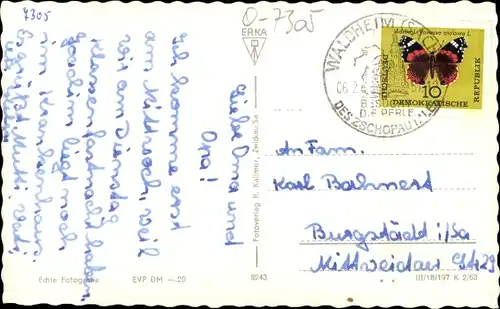 7305
0-7305
ERKA
WALDHEIM (SACHS)
06.2.6
BESUCHT
DIE PERLE
DES ZSCHOPAUTALES
Admiral-Vanessa atalanta L.
10
DEUTSCHE
DEMOKRATISCHE
REPUBLIK
Liebe Oma und
Opa!
Ich komme erst
am Mittwoch, weil
wir am Dienstag
Klassenfastnacht haben.
noch
im Krankenhaus.
Mutti
An Fam.
Karl Bohnert
Burgstädt i/Sa
Mittweidaer Str. 29
Fotoverlag R. Kallmer, Zwickau/Sa
Echte Fotografie
EVP DM —.20
8243
III/18/197 K 2/63